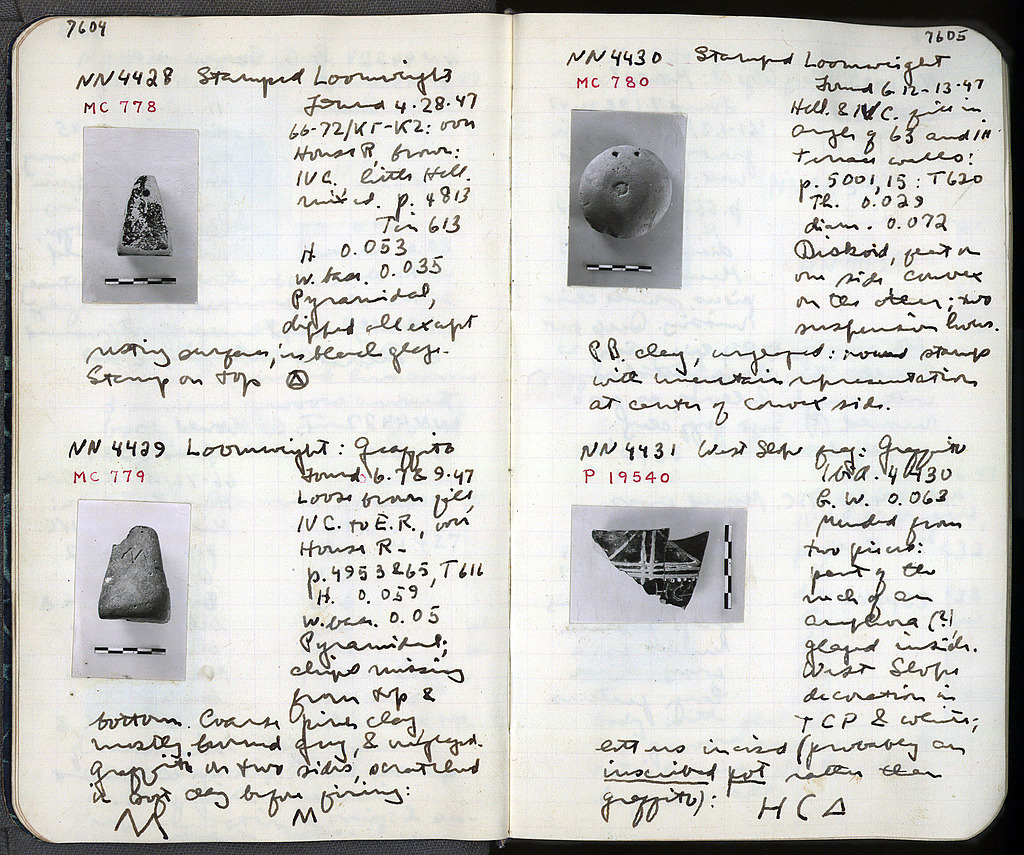 7604
NN 4428 Stamped Loomweight
MC 778
Found 4.28.47
66-72/ΚΓ-ΚΖ: over
House R, brown:
IV C. little Hell.
mixed. p. 4813
Tin 613
H. 0.053
W. base. 0.035
Pyramidal,
dipped all except
resting surface, in black glaze.
Stamp on top Ⓐ
NN 4429 Loomweight: Graffito
MC 779
Found 6.7&9.47
Loose brown fill,
IV C. to E.R., over
House R-
p. 4953 & 65, T 616
H. 0.059
W. base. 0.05
Pyramidal;
chips missing
from top &
bottom. Coarse piree clay,
mostly burned grey, & unglazed.
Graffito on two sides, scratched
in soft clay before firing:
M M
7605
NN 4430 Stamped Loomweight
MC 780
Found 6.12-13.47
Hell. & IV C. fill in
angle of 63 and
terrace walls:
p. 5001, 15: T620
Th. 0.029
diam. 0.072
Diskoid, flat on
one side, convex
on the other; two
suspension holes.
P.B. clay, unglazed: round stamp
with uncertain representation
at center of convex side.
NN 4431 West Slope frag: Graffito
P 19540
Ibid. 4430
G. W. 0.063
Mended from
two pieces:
part of the
neck of an
amphora (?)
glazed inside.
West Slope
decoration in
TCP & white;
letters incised (probably an
inscribed pot rather than
graffito): H C Δ